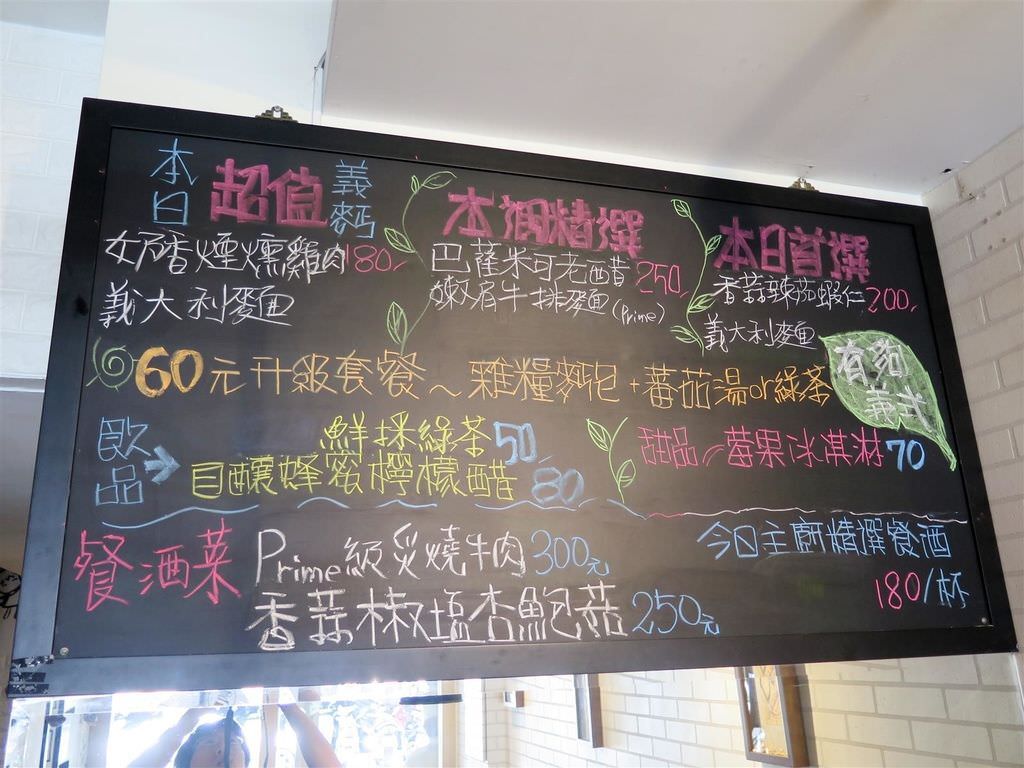 本日 超值 義麵
煙燻雞肉 180.
義大利麵
本週精選
巴薩米可老醋 250.
嫩肩牛排麵 (Prime)
本日首選
香蒜辣茄蝦仁 200.
義大利麵
60元升級套餐~雜糧麵包+蕃茄湯or綠茶
飲品→ 鮮採綠茶 50
自釀蜂蜜檸檬醋 80
甜品/莓果冰淇淋 70
餐酒菜 Prime級炙燒牛肉 300元
香蒜椒塩杏鮑菇 250元
今日主廚精選餐酒
180/杯